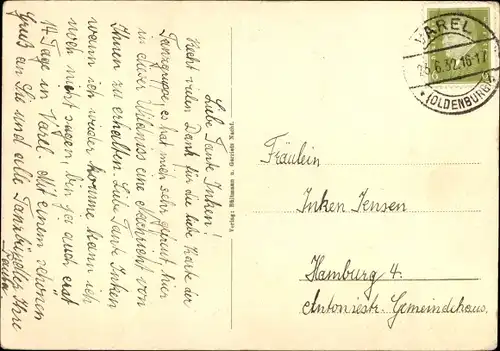 Liebe Tante Inken!
Recht vielen Dank für die liebe Karte der
Tanzgruppe, es hat mich sehr gefreut, hier
in einer Wildniss eine Nachricht von
Ihnen zu erhalten. Liebe Tante Inken
wann ich wieder komme kann ich
noch nicht sagen, bin ja auch erst
14 Tage in Varel. Mit einem schönen
Gruß an Sie und alle Ihre
VAREL
25.6.32.16-17
(OLDENBURG)
Fräulein
Inken Jensen
Hamburg 4.
Antoniestr. Gemeindehaus.
Verlag: Bültmann u. Gerriets Nachf.